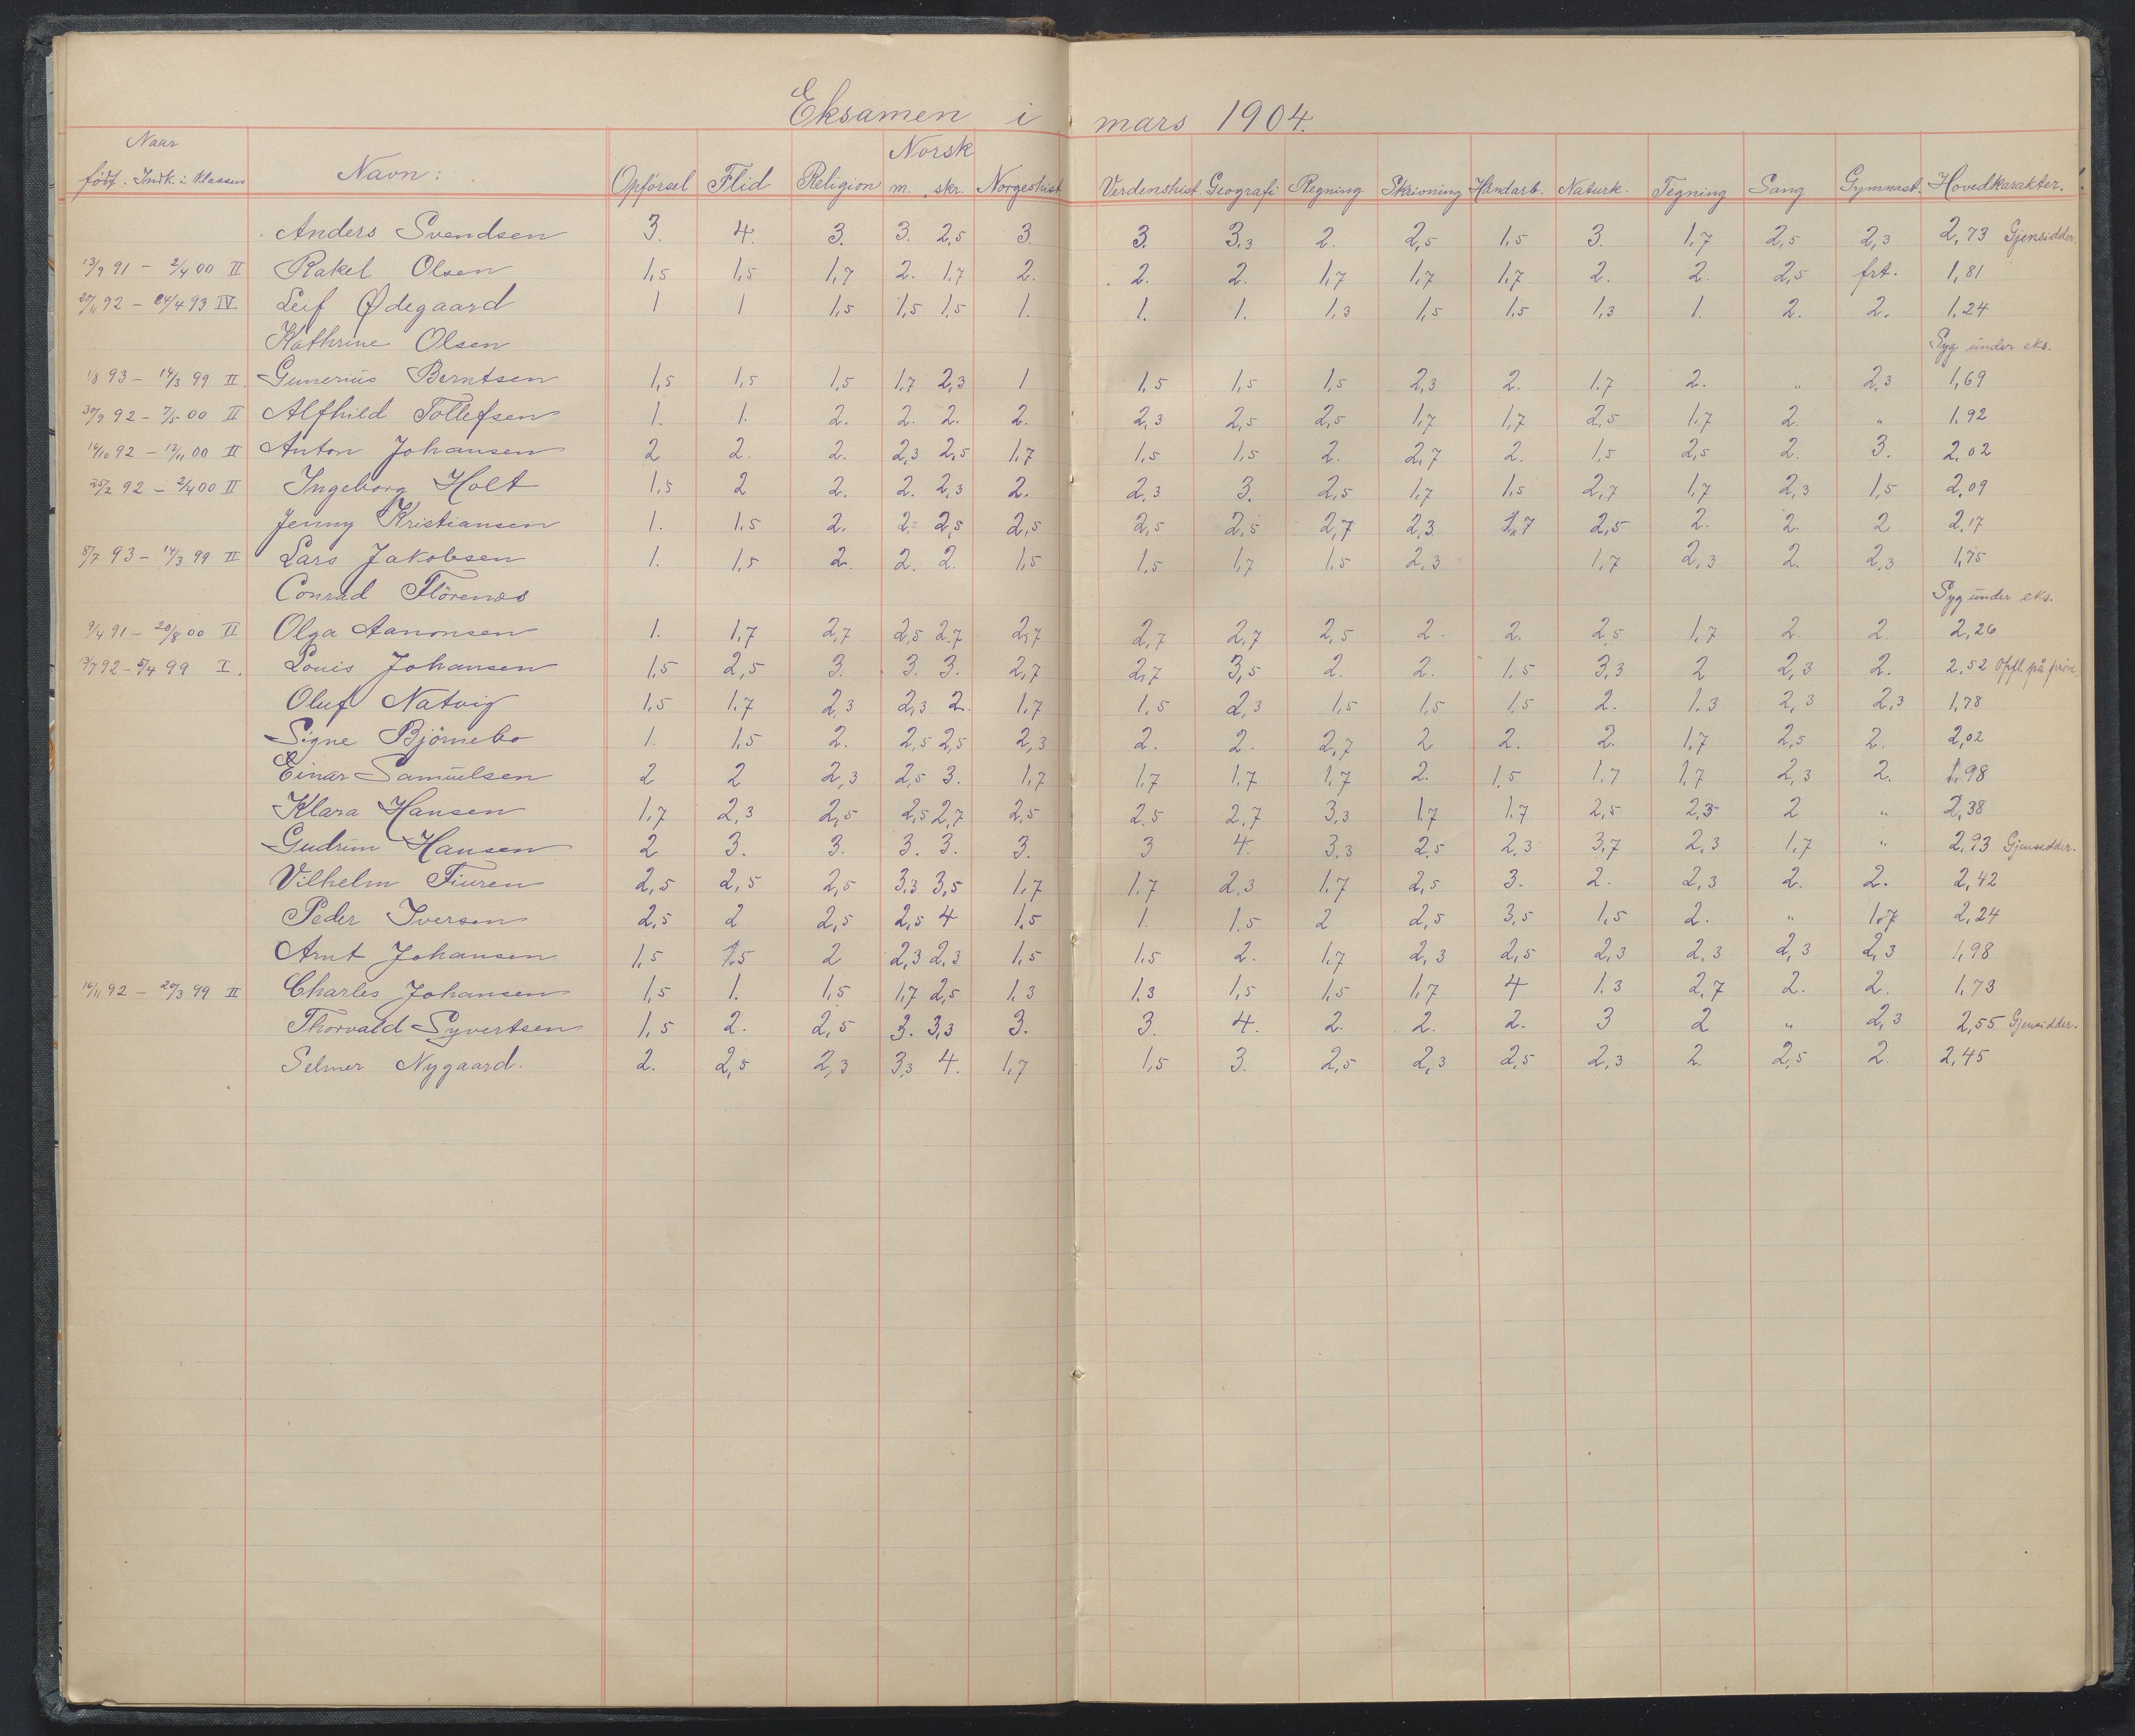 Eksamen i mars 1904.
Naar
født. Indk. i Klassen Navn: Opförsel Flid Religion Norsk m. skr. Norgeshist. Verdenshist. Geografi Regning Skrivning Håndarb. Naturk. Tegning Sang Gymnast. Hovedkarakter.
Anders Svendsen 3. 4. 3. 3. 2,5 3. 3. 3,3 2. 2,5 1,5 3. 1,7 2,5 2,3 2,73 Gjensidder.
13/9 91 - 2/4 00 II Rakel Olsen 1,5 1,5 1,7 2. 1,7 2. 2. 2. 1,7 1,7 1,7 2. 2. 2,5 frt. 1,81
20/11 92 - 24/4 93 IV Leif Ødegaard 1 1 1,5 1,5 1,5 1. 1. 1. 1,3 1,5 1,5 1,3 1. 2. 2. 1,24
Kathrine Olsen Syg under eks.
93 - 14/3 99 II Gunerius Berntsen 1,5 1,5 1,5 1,7 2,3 1 1,5 1,5 1,5 2,3 2. 1,7 2. " 2,3 1,69
30/9 92 - 7/5 00 II Alfhild Tollefsen 1. 1. 2. 2. 2. 2. 2,3 2,5 2,5 1,7 1,7 2,5 1,7 2. " 1,92
14/10 92 - 12/11 00 II Anton Johansen 2 2. 2. 2,3 2,5 1,7 1,5 1,5 2. 2,7 2. 1,5 2,5 2. 3. 2,02
25/2 92 - 2/4 00 II Ingeborg Holt 1,5 2 2. 2. 2,3 2. 2,3 3. 2,5 1,7 1,5 2,7 1,7 2,3 1,5 2,09
Jenny Kristiansen 1. 1,5 2. 2. 2,5 2,5 2,5 2,5 2,7 2,3 1,7 2,5 2. 2 2 2,17
8/7 93 - 14/3 99 II Lars Jakobsen 1. 1,5 2. 2. 2. 1,5 1,5 1,7 1,5 2,3 1,7 2,3 2. 2,3 1,75
Conrad Florenæs Syg under eks.
9/4 91 - 20/8 00 II Olga Aanonsen 1. 1,7 2,7 2,5 2,7 2,7 2,7 2,7 2,5 2. 2. 2,5 1,7 2. 2. 2,26
92 - 5/4 99 I. Louis Johansen 1,5 2,5 3. 3. 3. 2,7 2,7 3,5 2. 2. 1,5 3,3 2 2,3 2. 2,52 Opfl. på prøve
Oluf Natvig 1,5 1,7 2,3 2,3 2. 1,7 1,5 2,3 1,5 1,5 1,5 2. 1.3 2,3 2,3 1,78
Signe Björnebo 1. 1,5 2. 2,5 2,5 2,3 2. 2. 2,7 2 2. 2. 1,7 2,5 2. 2,02
Einar Samuelsen 2 2 2,3 2,5 3. 1,7 1,7 1,7 1,7 2. 1,5 1.7 1,7 2,3 2. 1,98
Klara Hansen 1,7 2,3 2,5 2,5 2,7 2,5 2,5 2,7 3,3 1,7 1,7 2,5 2,5 2 " 2,38
Gudrun Hansen 2 3. 3. 3. 3. 3. 3 4. 3,3 2,5 2,3 3,7 2,3 1,7 " 2,93 Gjensidder.
Vilhelm Fiuren 2,5 2,5 2,5 3,3 3,5 1,7 1,7 2,3 1,7 2,5 3. 2. 2,3 2. 2. 2,42
Peder Iversen 2,5 2 2,5 2,5 4 1,5 1. 1,5 2 2,5 3,5 1,5 2. " 1,7 2,24
Arnt Johansen 1,5 1,5 2 2,3 2,3 1,5 1,5 2. 1,7 2,3 2,5 2,3 2,3 2,3 2,3 1,98
16/11 92 - 20/3 99 II Charles Johansen 1,5 1. 1,5 1,7 2,5 1,3 1.3 1,5 1,5 1,7 4 1.3 2,7 2. 2. 1,73
Thorvald Syvertsen 1,5 2. 2,5 3. 3,3 3. 3. 4. 2. 2. 2. 3 2 " 2,3 2,55 Gjensidder.
Selmer Nygaard. 2. 2,5 2,3 3,3 4. 1,7 1,5 3. 2,5 2,3 2,5 2,3 2. 2,5 2. 2,45